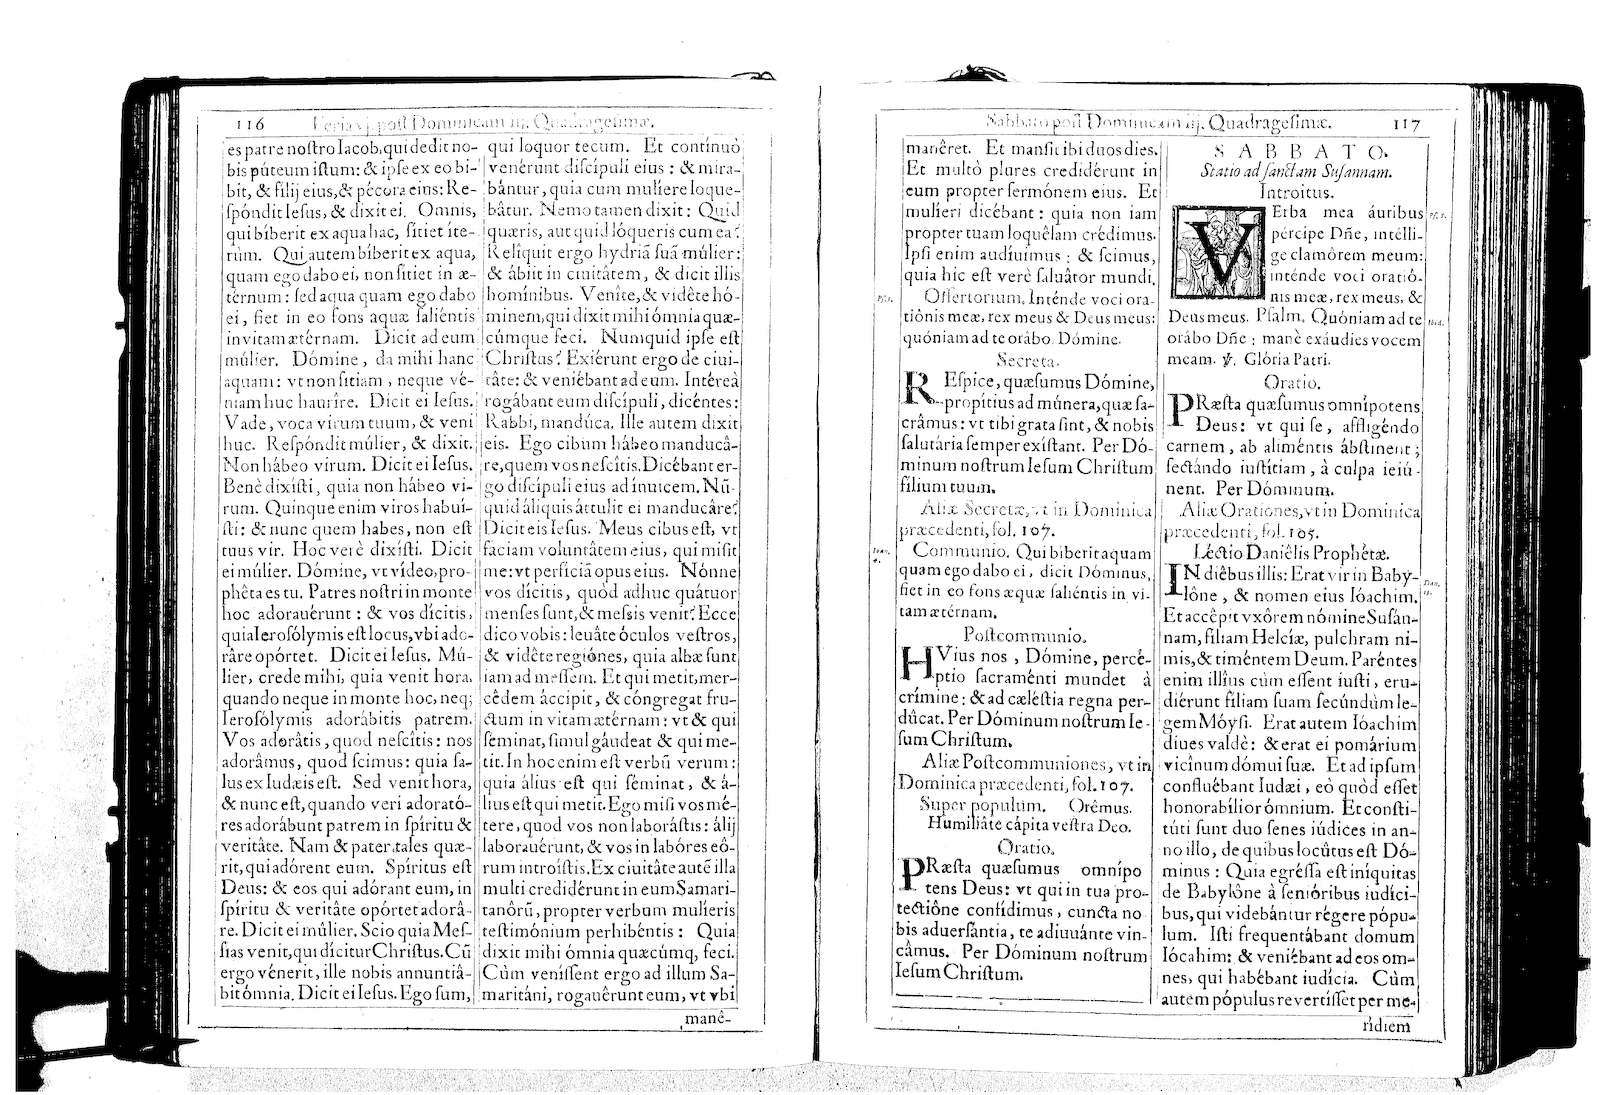 116 Feria vj. post Dominicam iij. Quadragesimæ.
es patre nostro Iacob, qui dedit no-
bis púteum istum: & ipse ex eo bi-
bit, & filij eius, & pécora eius: Re-
spóndit Iesus, & dixit ei. Omnis,
qui bíberit ex aqua hac, sítiet íte-
rùm. Qui autem bíberit ex aqua,
quam ego dabo ei, non sítiet in æ-
térnum: sed aqua quam ego dabo
ei, fiet in eo fons aquæ saliéntis
in vitam ætérnam. Dicit ad eum
múlier. Dómine, da mihi hanc
aquam: vt non sítiam, neque vé-
niam huc hauríre. Dicit ei Iesus.
Vade, voca virum tuum, & veni
huc. Respóndit múlier, & dixit.
Non hábeo virum. Dicit ei Iesus.
Benè dixísti, quia non hábeo vi-
rum. Quinque enim viros habuí-
sti: & nunc quem habes, non est
tuus vir. Hoc verè dixísti. Dicit
ei múlier. Dómine, vt vídeo, pro-
phêta es tu. Patres nostri in monte
hoc adorauérunt: & vos dícitis,
quia Ierosólymis est locus, vbi ado-
râre opórtet. Dicit ei Iesus. Mú-
lier, crede mihi, quia venit hora,
quando neque in monte hoc, neq;
Ierosólymis adorábitis patrem.
Vos adorâtis, quod nescîtis: nos
adorâmus, quod scimus: quia sa-
lus ex Iudæis est. Sed venit hora,
& nunc est, quando veri adorató-
res adorábunt patrem in spíritu &
veritâte. Nam & pater tales quæ-
rit, qui adórent eum. Spíritus est
Deus: & eos qui adórant eum, in
spíritu & veritâte opórtet adorâ-
re. Dicit ei múlier. Scio quia Mes-
sias venit, qui dícitur Christus. Cũ
ergo vénerit, ille nobis annuntiâ-
bit ómnia. Dicit ei Iesus. Ego sum,
qui loquor tecum. Et contínuò
venérunt discípuli eius: & mira-
bántur, quia cum mulíere loque-
bâtur. Nemo tamen dixit: Quid
quæris, aut quid lóqueris cum ea?
Relîquit ergo hydriã suã múlier:
& ábiit in ciuitâtem, & dicit illis
homínibus. Veníte, & vidête hó-
minem, qui dixit mihi ómnia quæ-
cúmque feci. Numquid ipse est
Christus? Exiérunt ergo de ciui-
tâte: & veniébant ad eum. Intéreà
rogábant eum discípuli, dicéntes:
Rabbi, mandúca. Ille autem dixit
eis. Ego cibum hábeo manducâ-
re, quem vos nescîtis. Dicébant er-
go discípuli eius ad ínuicem. Nũ-
quid áliquis áttulit ei manducâre?
Dicit eis Iesus. Meus cibus est, vt
faciam voluntâtem eius, qui misit
me: vt perficiã opus eius. Nónne
vos dícitis, quód adhuc quátuor
menses sunt, & messis venit? Ecce
dico vobis: leuâte óculos vestros,
& vidête regiónes, quia albæ sunt
iam ad messem. Et qui metit, mer-
cêdem áccipit, & cóngregat fru-
ctum in vitam ætérnam: vt & qui
séminat, simul gáudeat & qui me-
tit. In hoc enim est verbũ verum:
quia álius est qui séminat, & á-
lius est qui metit. Ego misi vos mé-
tere, quod vos non laborástis: álij
laborauérunt, & vos in labóres eó-
rum introístis. Ex ciuitâte autẽ illa
multi credidérunt in eum Samari-
tanôrũ, propter verbum mulíeris
testimónium perhibéntis: Quia
dixit mihi ómnia quæcúmq, feci.
Cùm veníssent ergo ad illum Sa-
maritáni, rogauêrunt eum, vt vbi
manê-
Sabbato post Dominicam iij. Quadragesimæ. 117
manêret. Et mansit ibi duos dies.
Et multò plures credidérunt in
eum propter sermónem eius. Et
mulíeri dicébant: quia non iam
propter tuam loquêlam crédimus.
Ipsi enim audíuimus: & scimus,
quia hic est verè saluâtor mundi.
Offertorium. Inténde voci ora-
tiônis meæ, rex meus & Deus meus:
quóniam ad te orábo. Dómine.
Secreta.
REspice, quæsumus Dómine,
propítius ad múnera, quæ sa-
crâmus: vt tibi grata sint, & nobis
salutária semper exístant. Per Dó-
minum nostrum Iesum Christum
filium tuum.
Aliæ Secretæ, vt in Dominica
præcedenti, fol. 107.
Communio. Qui bíberit aquam
quam ego dabo ei, dicit Dóminus,
fiet in eo fons æquæ saliéntis in vi-
tam ætérnam.
Postcommunio.
HVius nos, Dómine, percé-
ptio sacraménti mundet à
crímine: & ad cæléstia regna per-
dûcat. Per Dóminum nostrum Ie-
sum Christum.
Aliæ Postcommuniones, vt in
Dominica præcedenti, fol. 107.
Super populum. Orêmus.
Humiliâte cápita vestra Deo.
Oratio.
PRæsta quæsumus omnípo
tens Deus: vt qui in tua pro-
tectiône confídimus, cuncta no
bis aduersántia, te adiuuánte vin-
câmus. Per Dóminum nostrum
Iesum Christum.
SABBATO.
Statio ad sanctam Susannam.
Introitus.
VErba mea áuribus
pércipe Dñe, intélli-
ge clamôrem meum:
inténde voci oratió-
nis meæ, rex meus, &
Deus meus. Psalm. Quóniam ad te
orábo Dñe: manè exáudies vocem
meam. ℣. Glória Patri.
Oratio.
PRæsta quæsumus omnípotens
Deus: vt qui se, affligéndo
carnem, ab aliméntis ábstinent;
sectándo iustítiam, à culpa ieiú-
nent. Per Dóminum.
Aliæ Orationes, vt in Dominica
præcedenti, fol. 105.
Léctio Daniêlis Prophétæ.
IN diêbus illis: Erat vir in Baby-
lône, & nomen eius Ióachim.
Et accêpit vxôrem nómine Susán-
nam, fíliam Helcíæ, pulchram ni-
mis, & timéntem Deum. Paréntes
enim illíus cùm essent iusti, eru-
diérunt fíliam suam secúndùm le-
gem Móysi. Erat autem Ióachim
diues valdè: & erat ei pomárium
vicínum dómui suæ. Et ad ipsum
confluébant Iudæi, eò quòd esset
honorabílior ómnium. Et consti-
túti sunt duo senes iúdices in an-
no illo, de quibus locûtus est Dó-
minus: Quia egréssa est iníquitas
de Babylône à senióribus iudíci-
bus, qui videbántur régere pópu-
lum. Isti frequentábant domum
Iócahim: & veniébant ad eos om-
nes, qui habébant iudícia. Cùm
autem pópulus revertísset per me-
ridiem